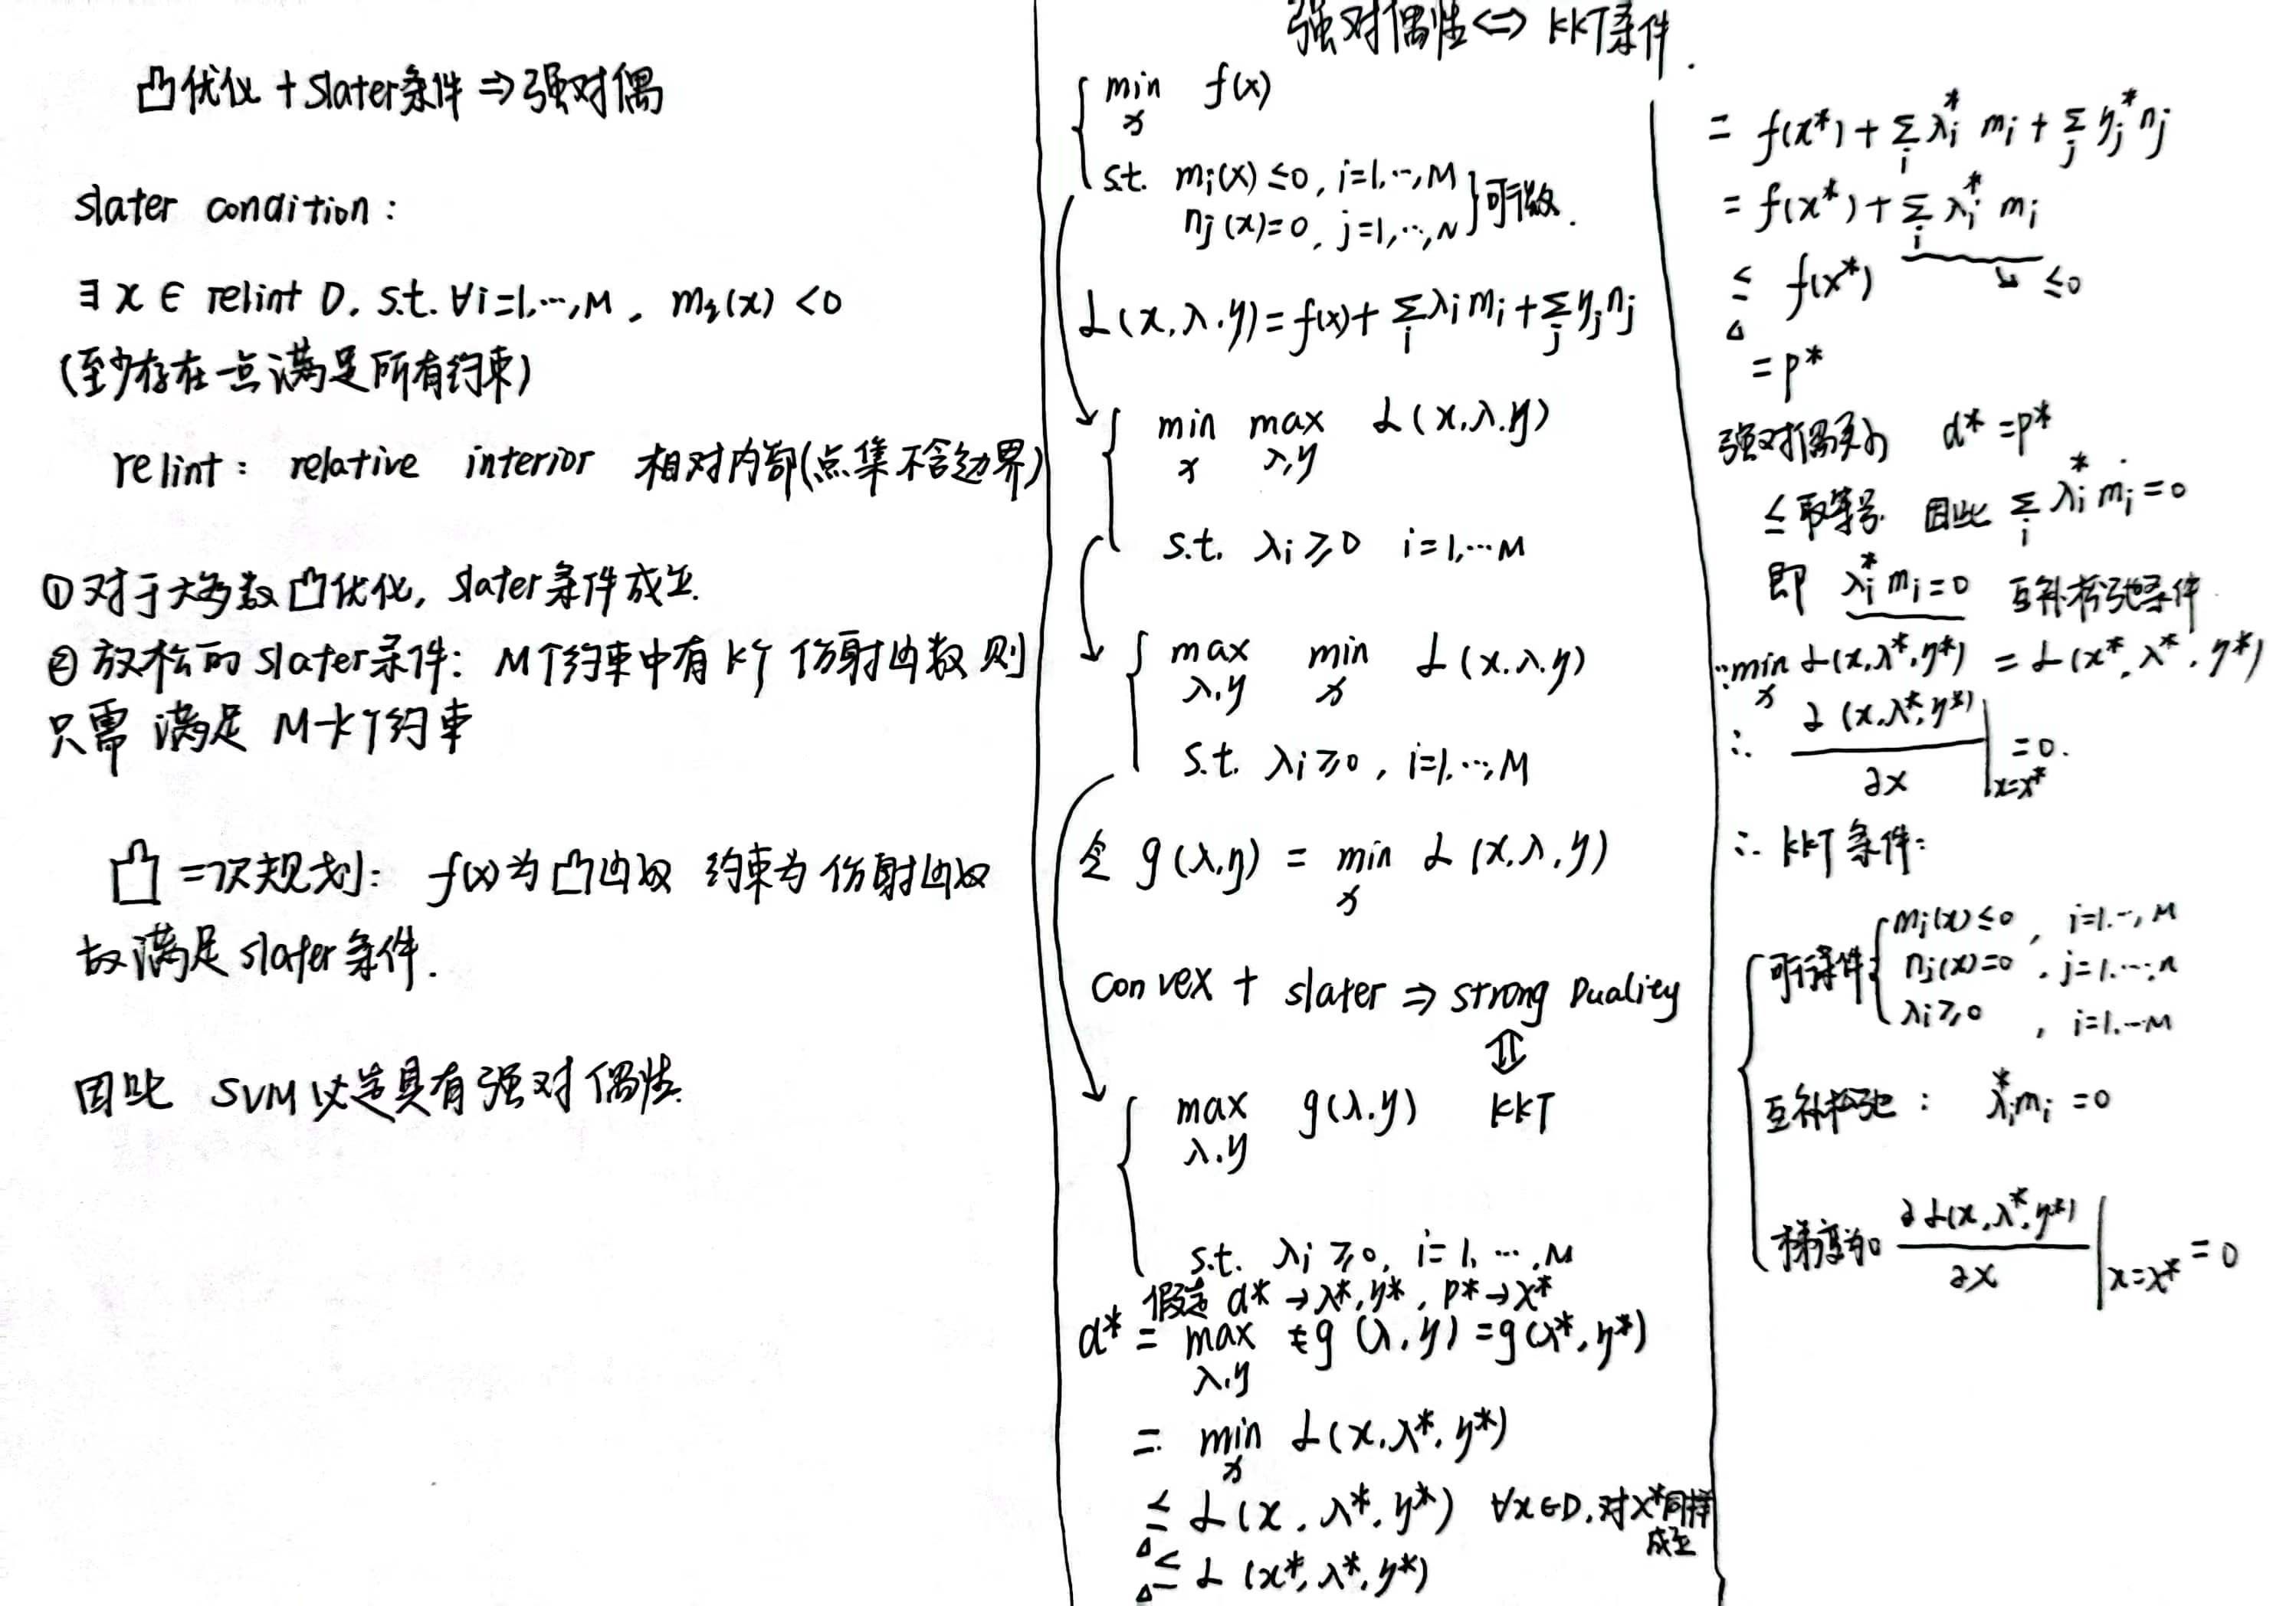 凸优化 + slater条件 ⇒ 强对偶
slater condition :
∃ x ∈ relint D, s.t. ∀i=1,…,M , mᵢ(x) <0
(至少存在一点满足所有约束)
relint : relative interior 相对内部(点集不含边界)
① 对于大多数凸优化, slater条件成立.
② 放松的slater条件: M个约束中有k个仿射函数 则
只需 满足 M-k个约束
凸二次规划: f(x)为凸函数 约束为仿射函数
故满足slater条件.
因此 SVM必定具有强对偶性.
强对偶性 ⇔ KKT条件.
min f(x)
x
s.t. mᵢ(x) ≤0, i=1,…,M
nⱼ(x)=0, j=1,…,N } 可微.
L(x,λ,y) = f(x)+ Σᵢ λᵢmᵢ + Σⱼ yⱼnⱼ
min max L(x,λ,y)
x λ,y
s.t. λᵢ ≥0 i=1,…M
max min L(x,λ,y)
λ,y x
s.t. λᵢ ≥0 , i=1,…,M
令 g(λ,y) = min L(x,λ,y)
x
Convex + slater ⇒ strong Duality
⇕
max g(λ,y) KKT
λ,y
s.t. λᵢ ≥0, i=1, …,M
假定 d* → λ*,y* , p* → x*
d* = max g(λ,y) = g(λ*,y*)
λ,y
= min L(x,λ*,y*)
x
≤ L(x,λ*,y*) ∀x∈D,对x*同样
△ 成立
≤ L(x*,λ*,y*)
△
= f(x*) + Σᵢ λᵢ* mᵢ + Σⱼ yⱼ* nⱼ
= f(x*) + Σᵢ λᵢ* mᵢ
≤ f(x*) ↘ ≤0
△
= p*
强对偶 d* = p*
≤取等号. 因此 Σᵢ λᵢ* mᵢ =0
即 λᵢ* mᵢ=0 互补松弛条件
∵ min L(x,λ*,y*) = L(x*,λ*,y*)
x
∴ ∂(x,λ*,y*)/∂x |x=x* =0.
∴ KKT条件:
可行条件 { mᵢ(x) ≤0 , i=1,…,M
nⱼ(x)=0 , j=1,…,n
λᵢ ≥0 , i=1,…M
互补松弛 : λᵢ* mᵢ =0
梯度为0 ∂L(x,λ*,y*)/∂x |x=x* = 0